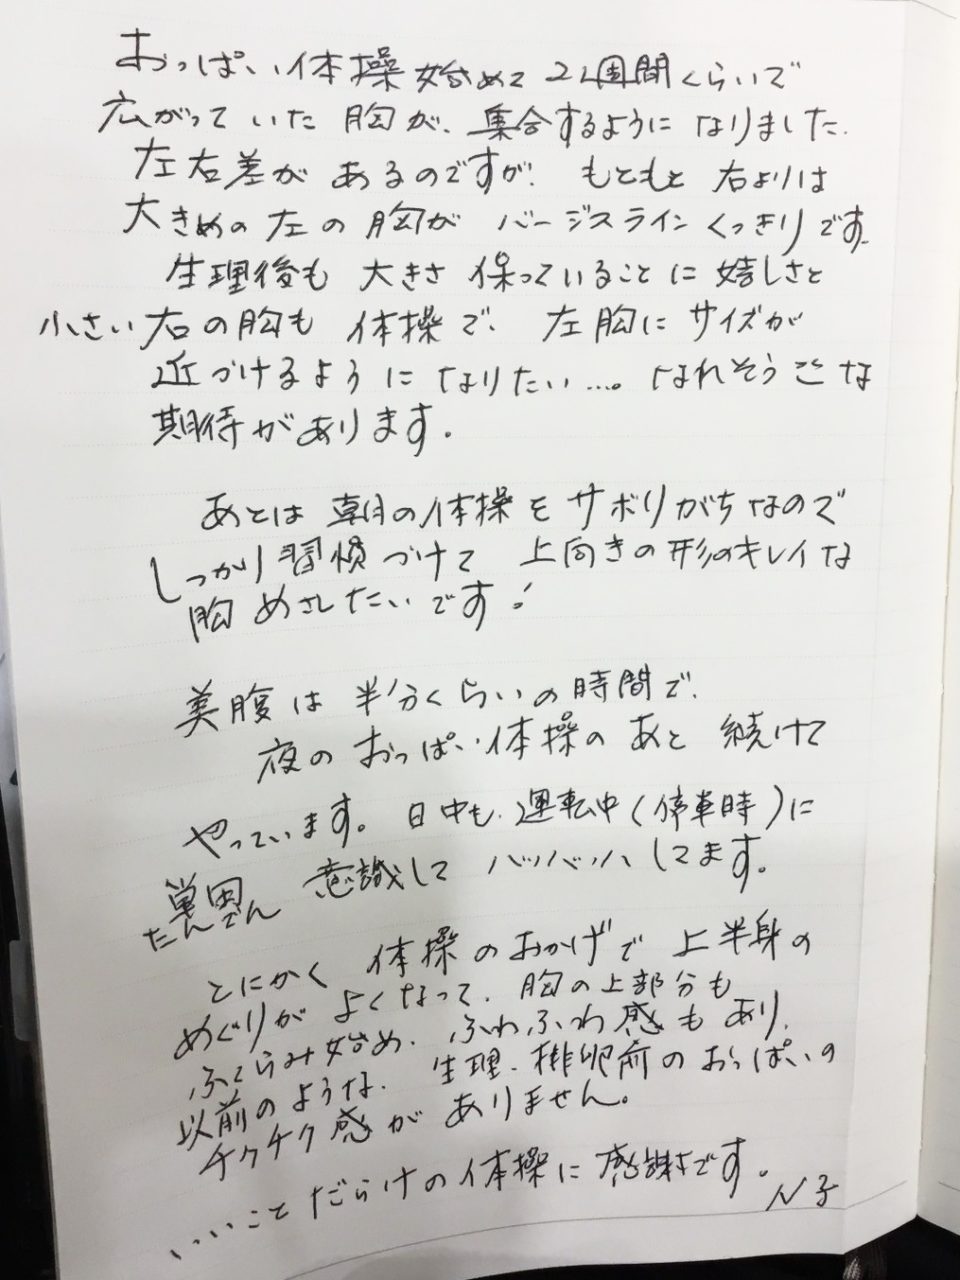 おっぱい体操始めて2週間くらいで
広がっていた胸が、集合するようになりました。
左右差があるのですが、もともと右よりは
大きめの左の胸がバージスラインくっきりです。
生理後も大きさ保っていることに嬉しさと
小さい右の胸も体操で、左胸にサイズが
近づけるようになりたい…。なれそうな
期待があります。
あとは朝の体操をサボりがちなので
しっかり習慣づけて上向きの形のキレイな
胸めざしたいです!
美腹は半分くらいの時間で、
夜のおっぱい体操のあと続けて
やっています。日中も、運転中(停車時)に
意識してハッハッハしてます。
たんでん
とにかく体操のおかげで上半身の
めぐりがよくなって、胸の上部分も
ふくらみ始め、ふわふわ感もあり、
以前のような、生理・排卵前のおっぱいの
チクチク感がありません。
いいことだらけの体操に感謝です。
N子